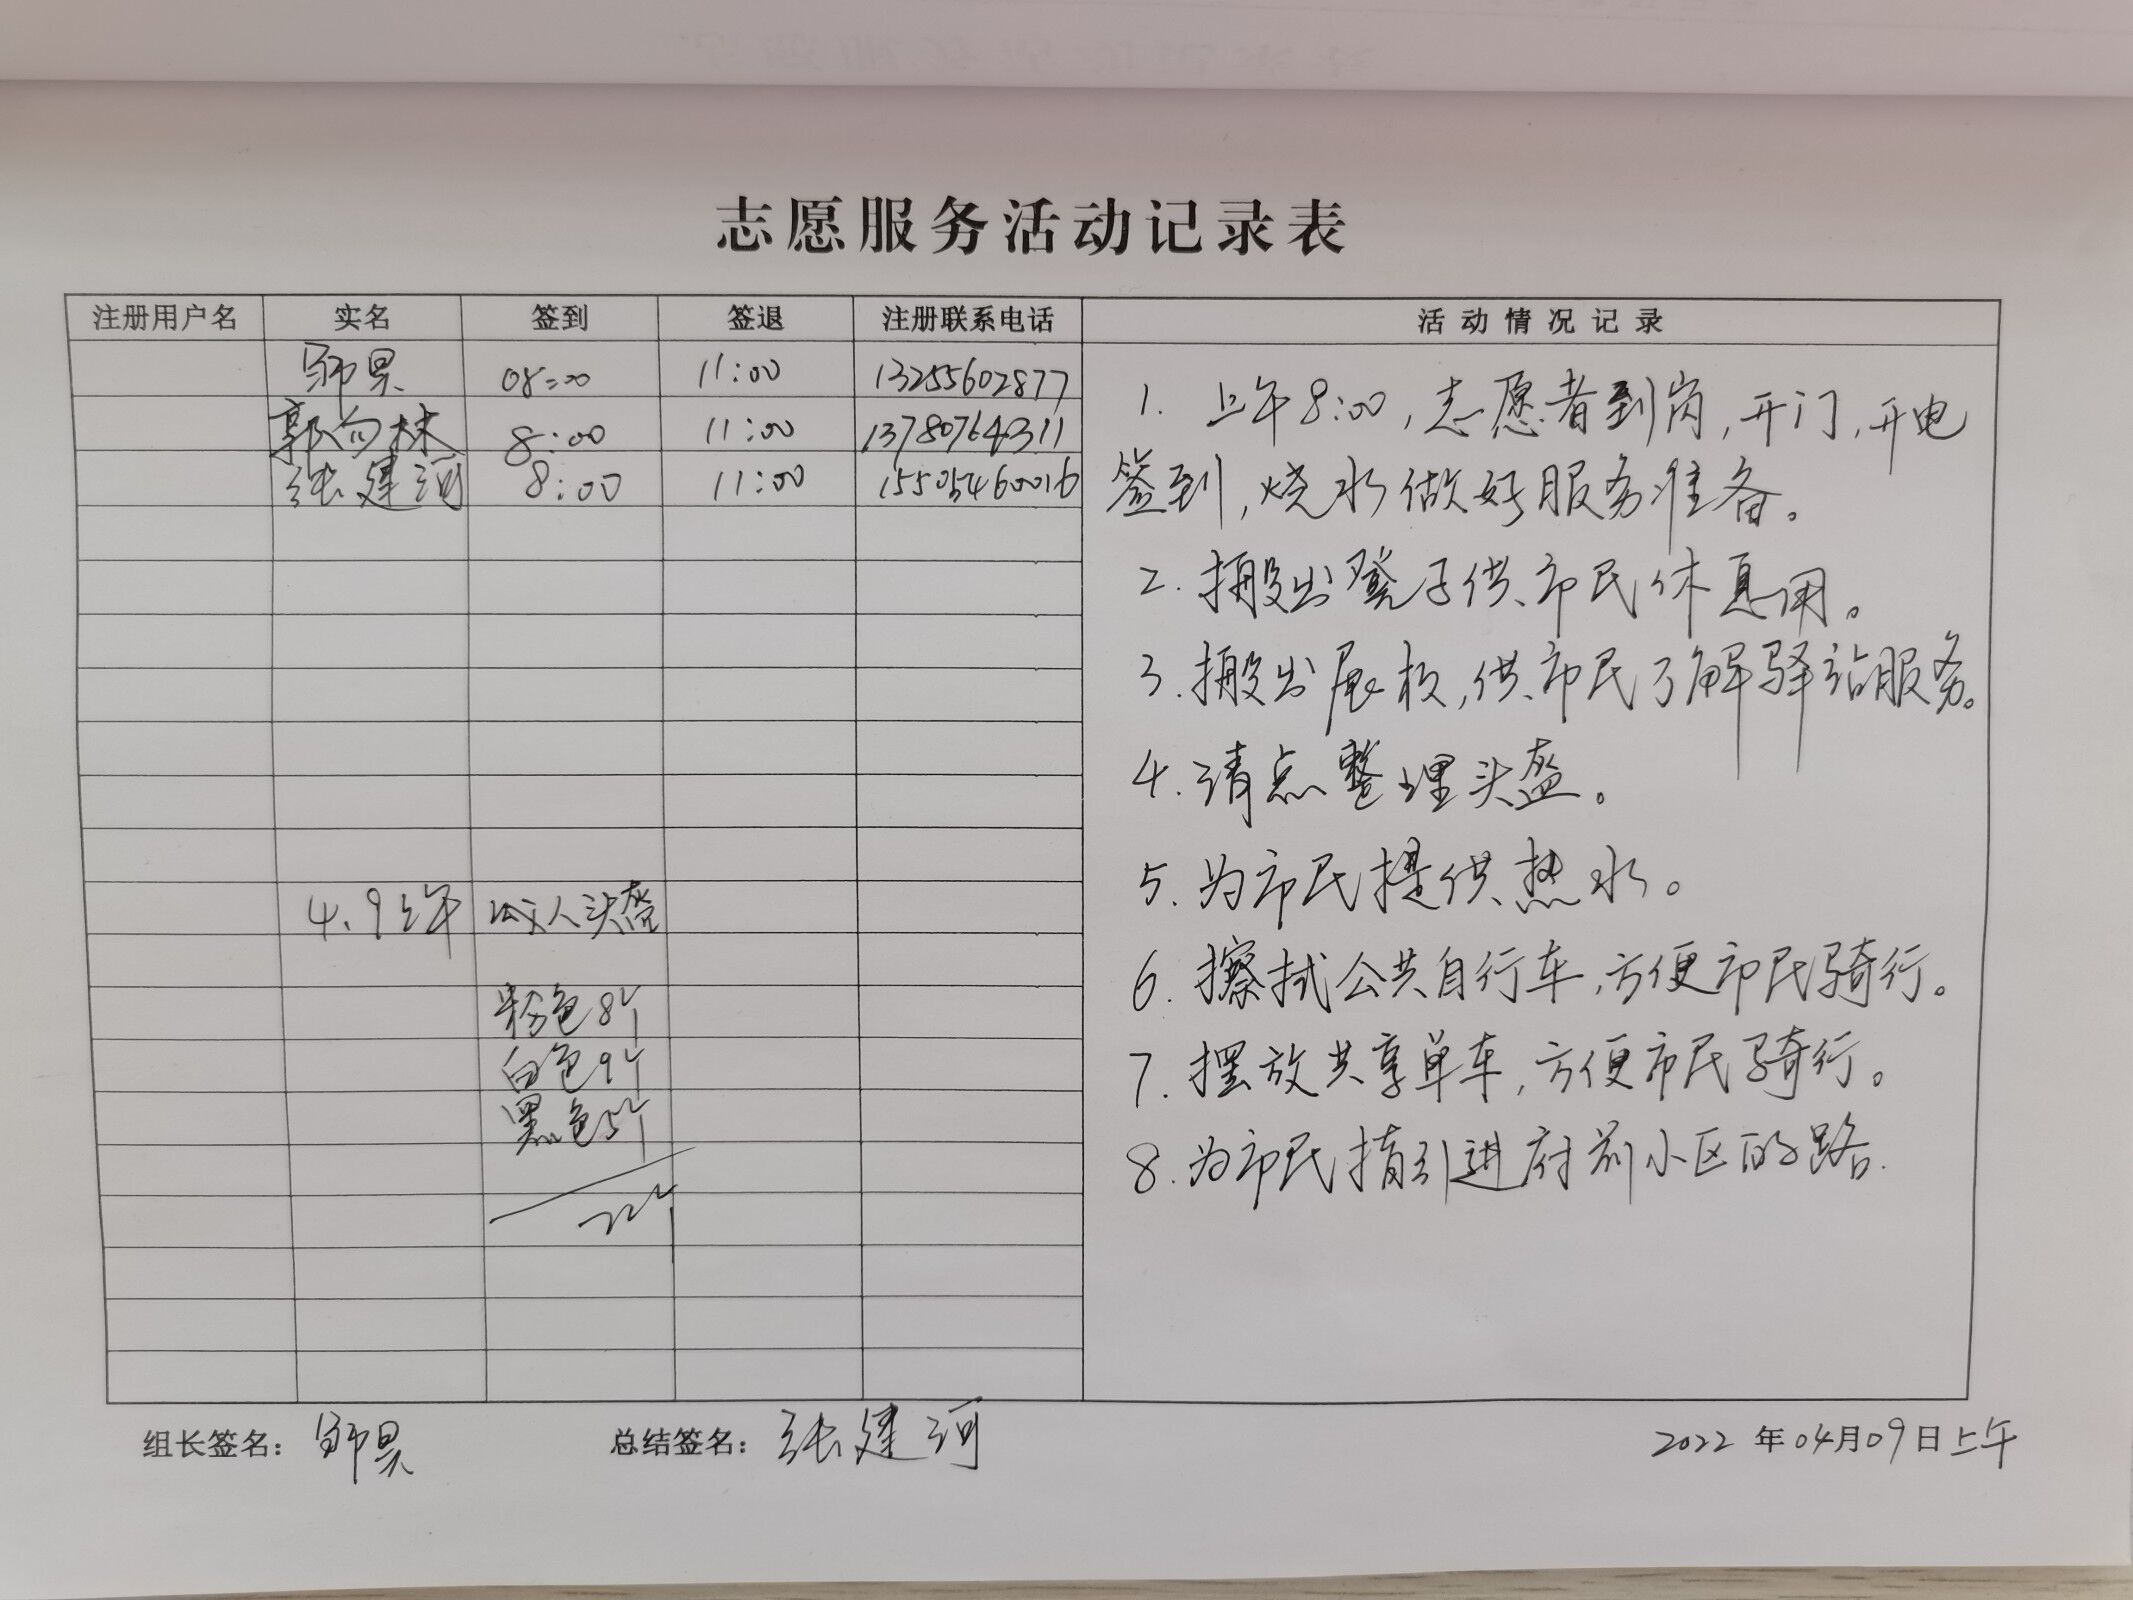 志愿服务活动记录表
注册用户名 实名 签到 签退 注册联系电话 活动情况记录
郭昊 08:00 11:00 13255602877
郭向林 8:00 11:00 13780764311
张建河 8:00 11:00 15505460016
4.9上午 公交人头盔
粉色8个
白色9个
黑色5个
22个
1. 上午8:00,志愿者到岗,开门,开电
签到,烧水做好服务准备。
2. 搬出凳子供市民休息用。
3. 搬出展板,供市民了解驿站服务。
4. 清点整理头盔。
5. 为市民提供热水。
6. 擦拭公共自行车,方便市民骑行。
7. 摆放共享单车,方便市民骑行。
8. 为市民指引进府前小区的路.
组长签名: 郭昊 总结签名: 张建河 2022年04月09日上午